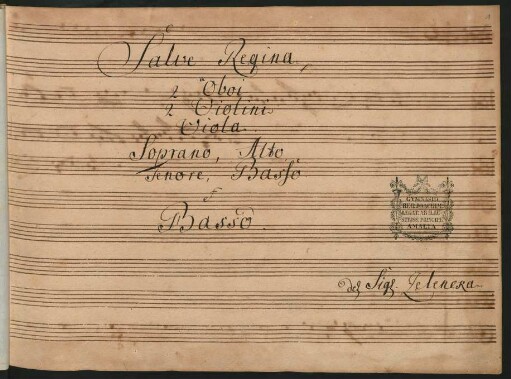 Salve Regina
2 Oboi
2 Violini
Viola
Soprano, Alto
Tenore, Basso
e
Basso.
GYMNASIO
AMALIA
del Sigr. Zelenka